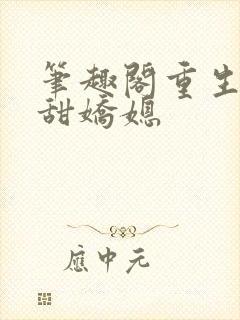 筆趣閣重生
甜嬌媳
應中元